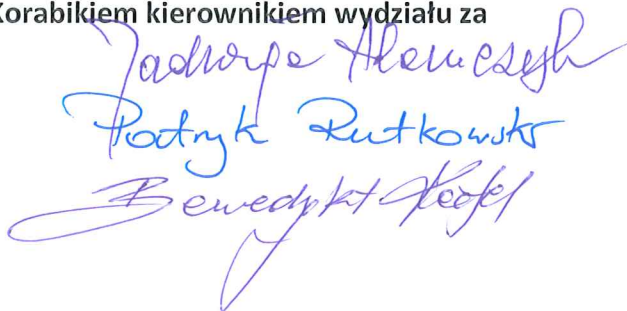 Korabikiem kierownikiem wydziału za
Jadwiga Adamczyk
Patryk Rutkowski
Benedykt